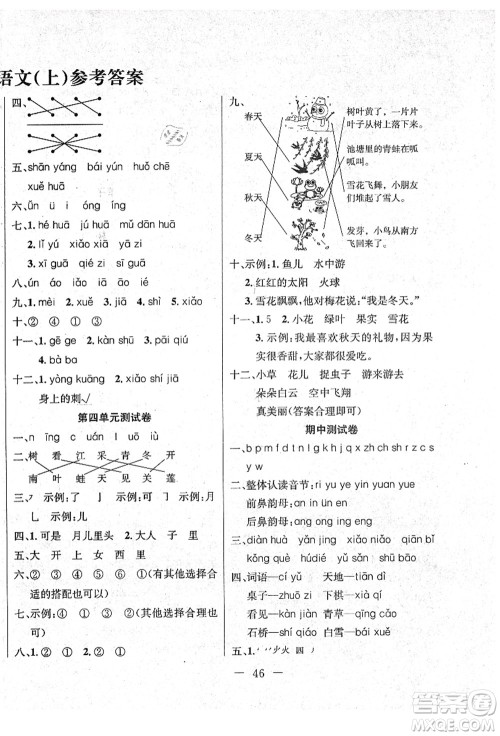 语文(上)参考答案
四、
五、shān yáng bái yún huǒ chē
xuě huā
六、ǖ üí óng íng
七、1. hé huā jú huā mǔ dān huā
2. lǐ yú xiǎo jī yā zi
3. xī guā qié zi bái cài
八、1. mèi 2. jiā 3. jiā shì
九、1. xià 2. zuò 3. xiǎo
十、② ④ ① ③
十一、1. gē ge 2. kàn shū 3. pāi qiú
4. bà ba
十二、yòng kuāng xiǎo jiǎ
身上的刺√
第四单元测试卷
一、n īng c uán l ú ióng
二、树 看 江 采 青 冬 开
南 叶 蓝 天 见 关 莲
三、示例:了 示例:子 示例:月
示例:几
四、1. 可 2. 月 儿 里 头 3. 大 人 子 里
五、大 开 上 女 西 里
六、① ② ④ ③(有其他选择合
适的搭配也可以)
七、示例:① ②(有其他选择合理也可
以)
八、② ① ③ ④
九、
春天
夏天
秋天
冬天
树叶黄了,一片片
叶子从树上落下来。
池塘里的青蛙在呱
呱叫。
雪花飞舞,小朋友
们堆起了雪人。
发芽,小燕子从南方
飞回来了。
十、示例:1. 鱼儿 水中游
2. 红红的太阳 火球
3. 雪花飘飘,他对梅花说:“我是冬天。”
十一、1. 5 2. 小花 绿叶 果实 雪花
3. 示例:我最喜欢秋天的礼物,因为秋
天有很多果实,有苹果、梨、柿子等。
十二、小草 花儿 捉虫子 游来游去
朵朵白云 空中飞翔
真美丽(答案合理即可)
期中测试卷
一、b p m f d t n l g k h j q x zh ch sh r z c s
y w
二、整体认读音节:yi ri ye yin yuan yue
前鼻韵母:an in ün en
后鼻韵母:ang ong ing eng
三、diàn huà qì qiú shū bāo qīng wā
kǒng què húdié yú cì bái cài
四、词语—cí yǔ 天地—tiān dì
桌子—zhuō zi 下棋—xià qí
看见—kàn jiàn 青草—qīng cǎo
石桥—shí qiáo 白雪—bái xuě
五、1. 火 四
46